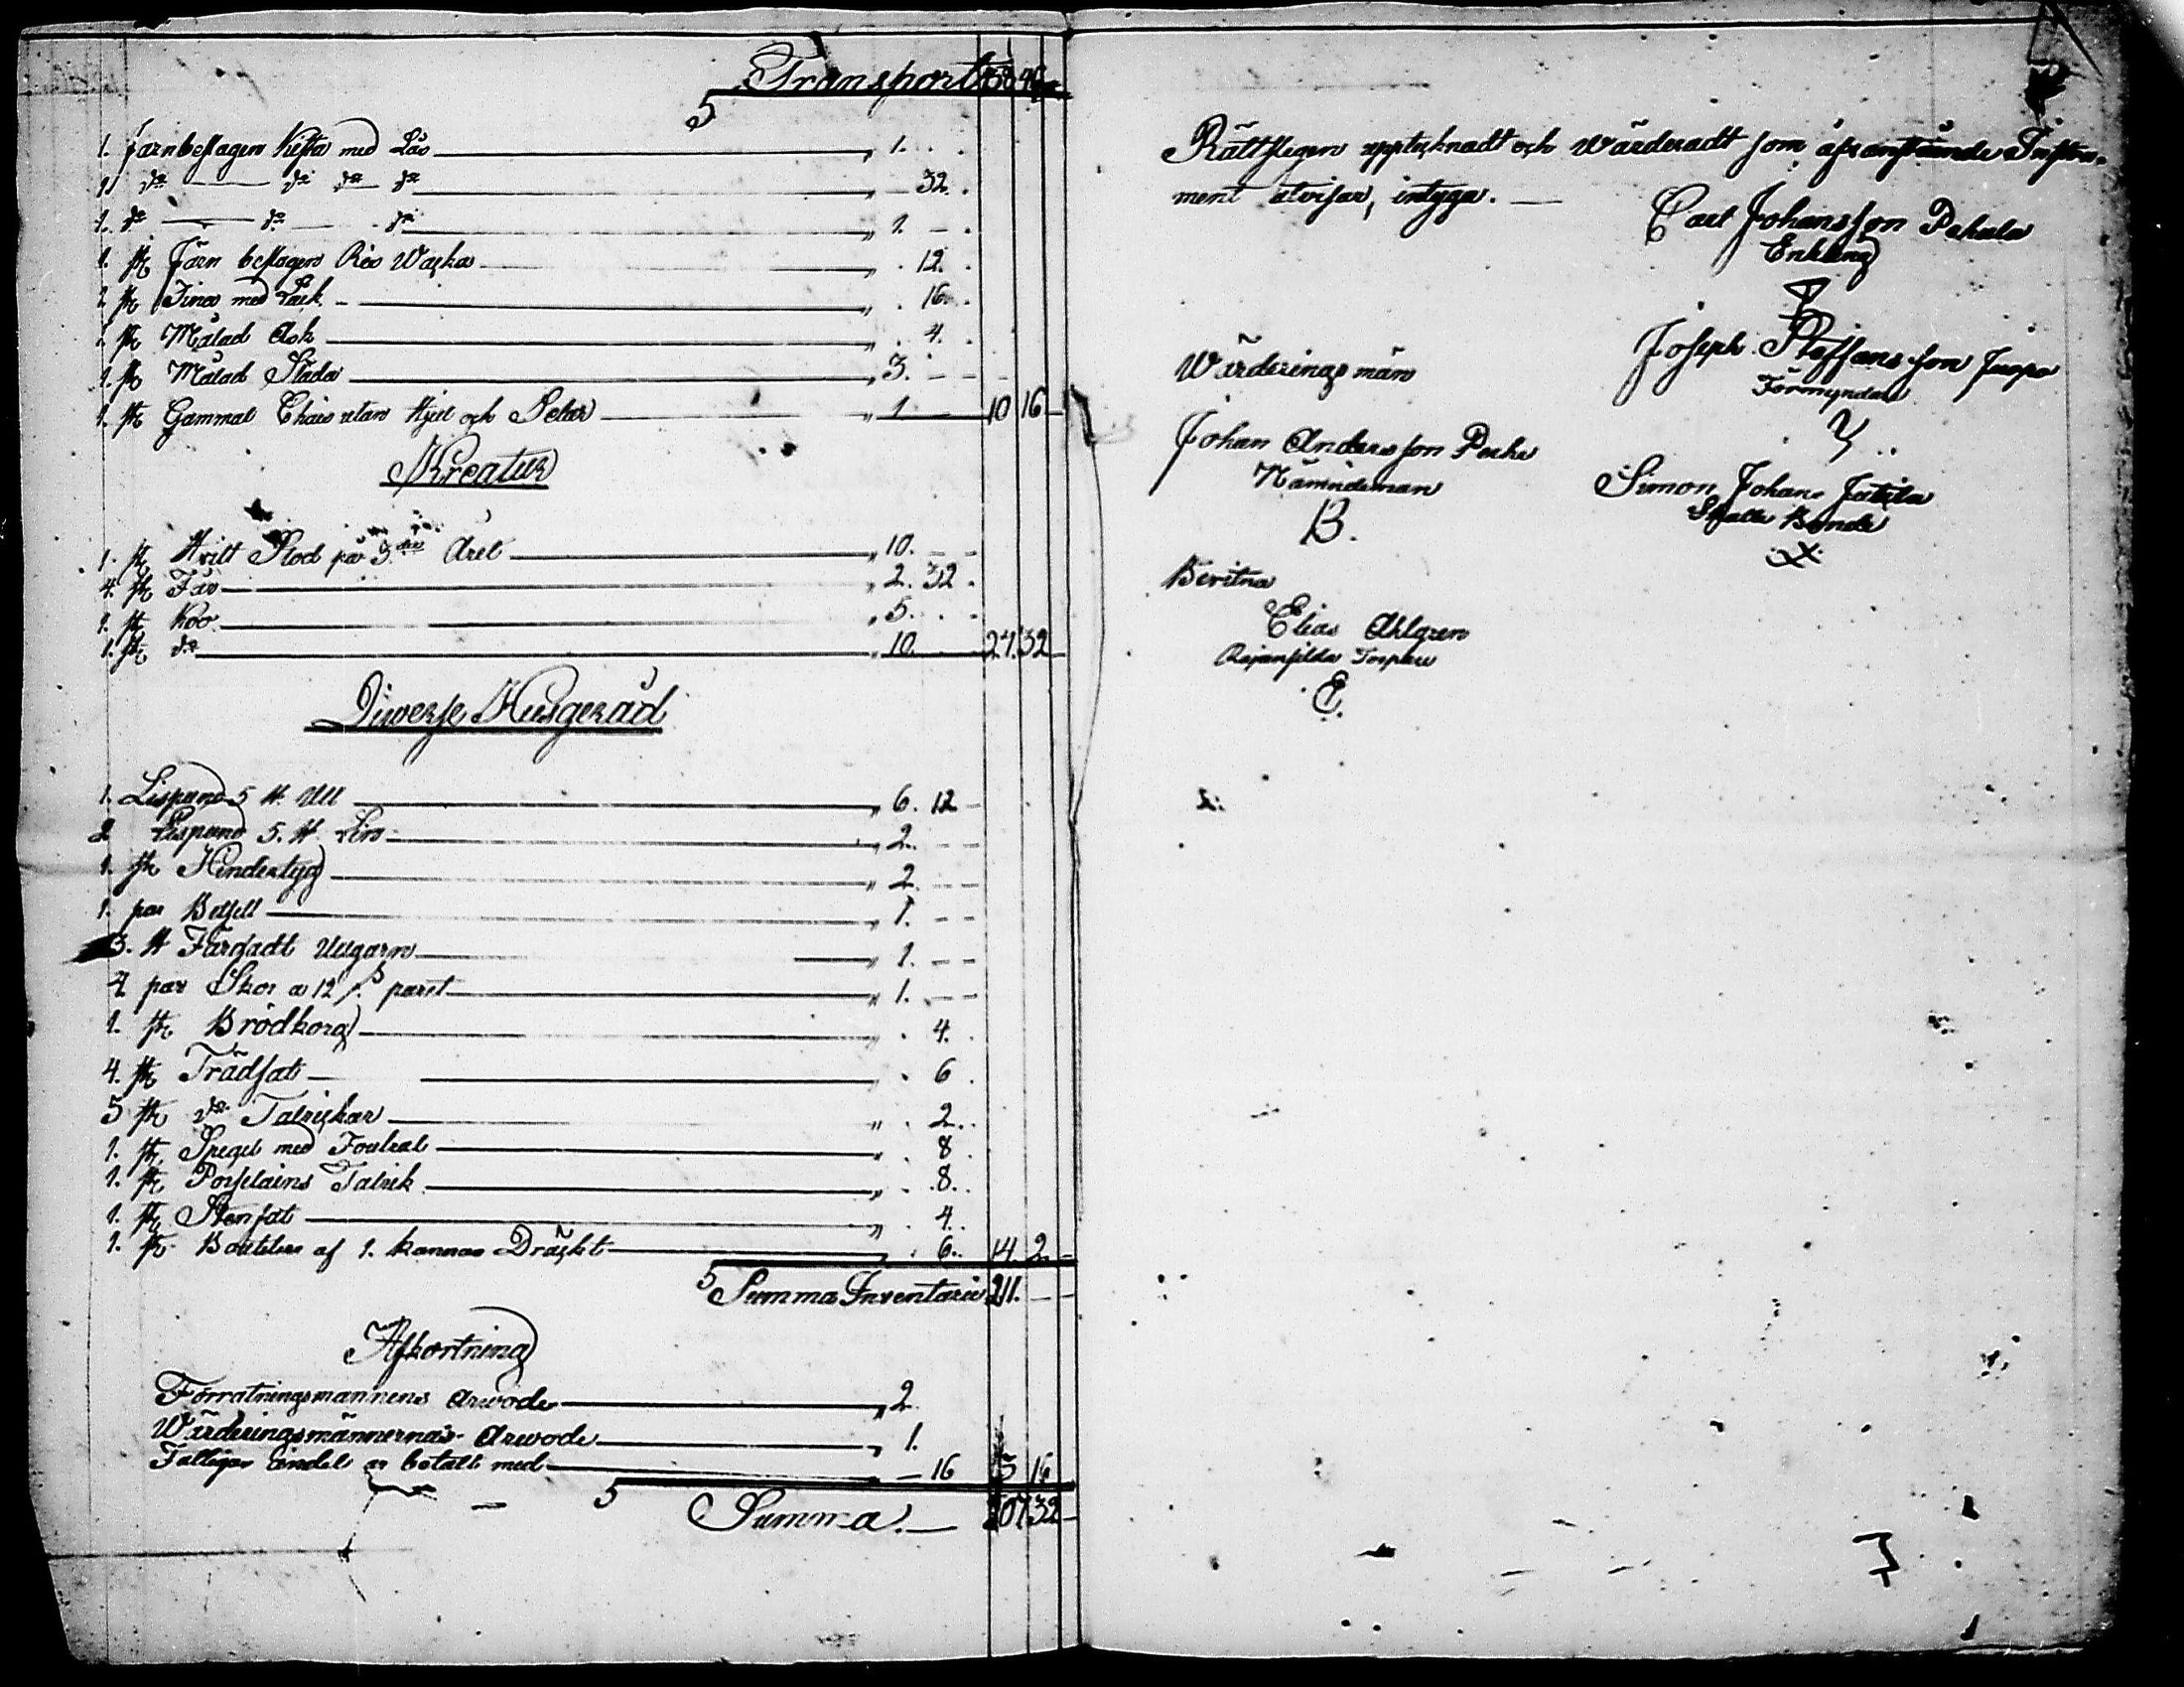 Transport 158 46
1. järnbeslagen Kista med Lås 1.
1. do do do do 32.
1. do do do 1.
1. st Järn beslagen 12.
1. st Tina med Lock 16.
1. st Målad Ask 4.
1. st Målad Släda 3.
1. st Gammal Chäis utan Hjul och Selar 1 10 16
Kreatur
1. st Hvitt Stod på 3dje Året 10.
4. st Får 2. 32.
1. st Koo 5.
1. st do 10. 27. 32
Diverse Husgeråd
1. Lispund 5 ℔ Ull 6. 12
2 Lispund 5. ℔ Lin 2.
1. st Hindertyg 2.
1. par Betsell 1.
3. ℔ Färgadt Ullgarn 1.
4 par Skor a 12 s. paret 1.
1. st Brödkorg 4.
4. st Trädfat 6.
5 st do Talrickar 2.
1. st. Spegel med Foutral 8.
1. st. Porslains Talrik 8.
1. st. Stenfat 4.
1. st. Boutelier af 1. kannas Dräckt 6. 14. 2.
Summa Inventarii 211.
Afkortning
Förrätningsmannens Arvode 2
Wärderingsmännernas Arvode 1.
Fattigas andel är betalt med 16 3 16
Summa. 207 32
Rättsligen upptecknadt och Wärderadt som åfvanstående Instru-
ment utvisar, intyga.
Carl Johansson Pekala
Enkling
Wärderingsmän
Joseph Staffansson Juopo
Förmyndare
Johan Andersson Perke
Nämndeman
B.
Simon Johans Jutila
Skatte Bonde
Bevitna
Elias Ahlgren
E.